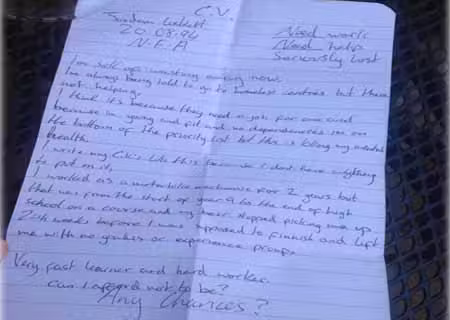 C.V.
Jordan
20.08.94
N.F.A
Need work
Need help
Seriously lost
I'm sick of wasting away now.
I'm always being told to go to homeless centres but there
not helping.
I think it's because they need a job for one and
because im young and fit and no dependencies im on
the bottom of the priority list but this is killing my mental
health.
I write my C.V.s like this because I don't have anything
to put on it,
I worked as a motorbike mechanic for 2 years but
that was from the start of year 9 to the end of high
school on a course and my boss stopped picking me up
weeks before I was supposed to finish and left
me with no grades or experience proof.
Very fast learner and hard worker.
can I afford not to be?
Any Chances?